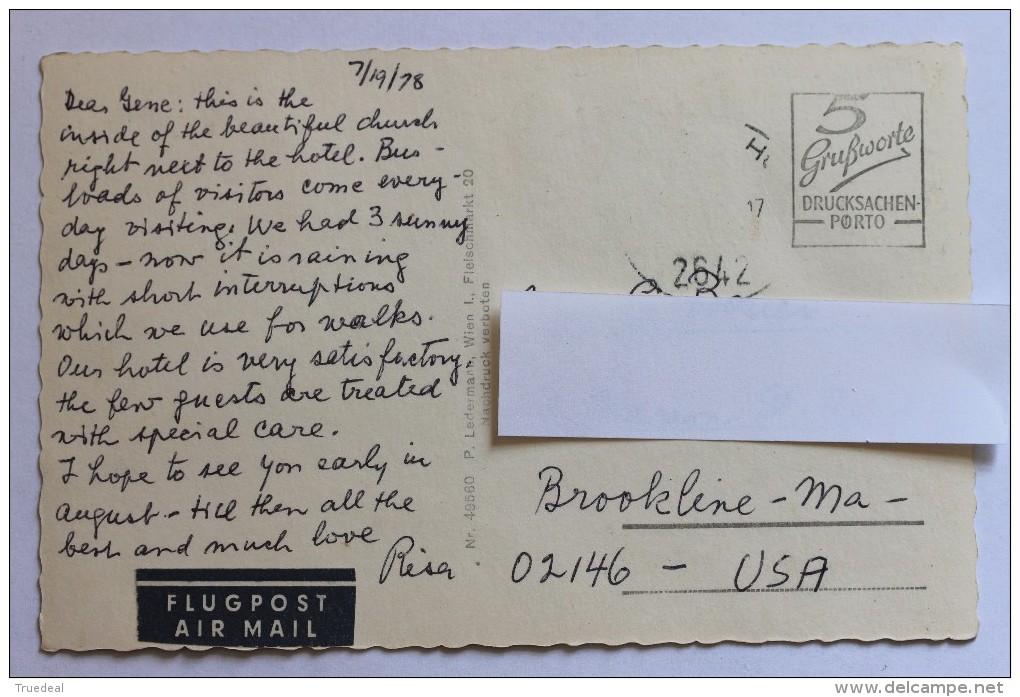 7/19/78
Dear Gene: this is the
inside of the beautiful church
right next to the hotel. Bus-
loads of visitors come every-
day visiting. We had 3 sunny
days - now it is raining
with short interruptions
which we use for walks.
Our hotel is very satisfactory.
the few guests are treated
with special care.
I hope to see you early in
august - till then all the
best and much love
Risa
FLUGPOST
AIR MAIL
Nr. 49560 P. Ledermann, Wien I., Fleischmarkt 20
Nachdruck verboten
5
Grußworte
DRUCKSACHEN-
PORTO
17
2642
Brookline - Ma -
02146 - USA
Truedeal
delcampe.net